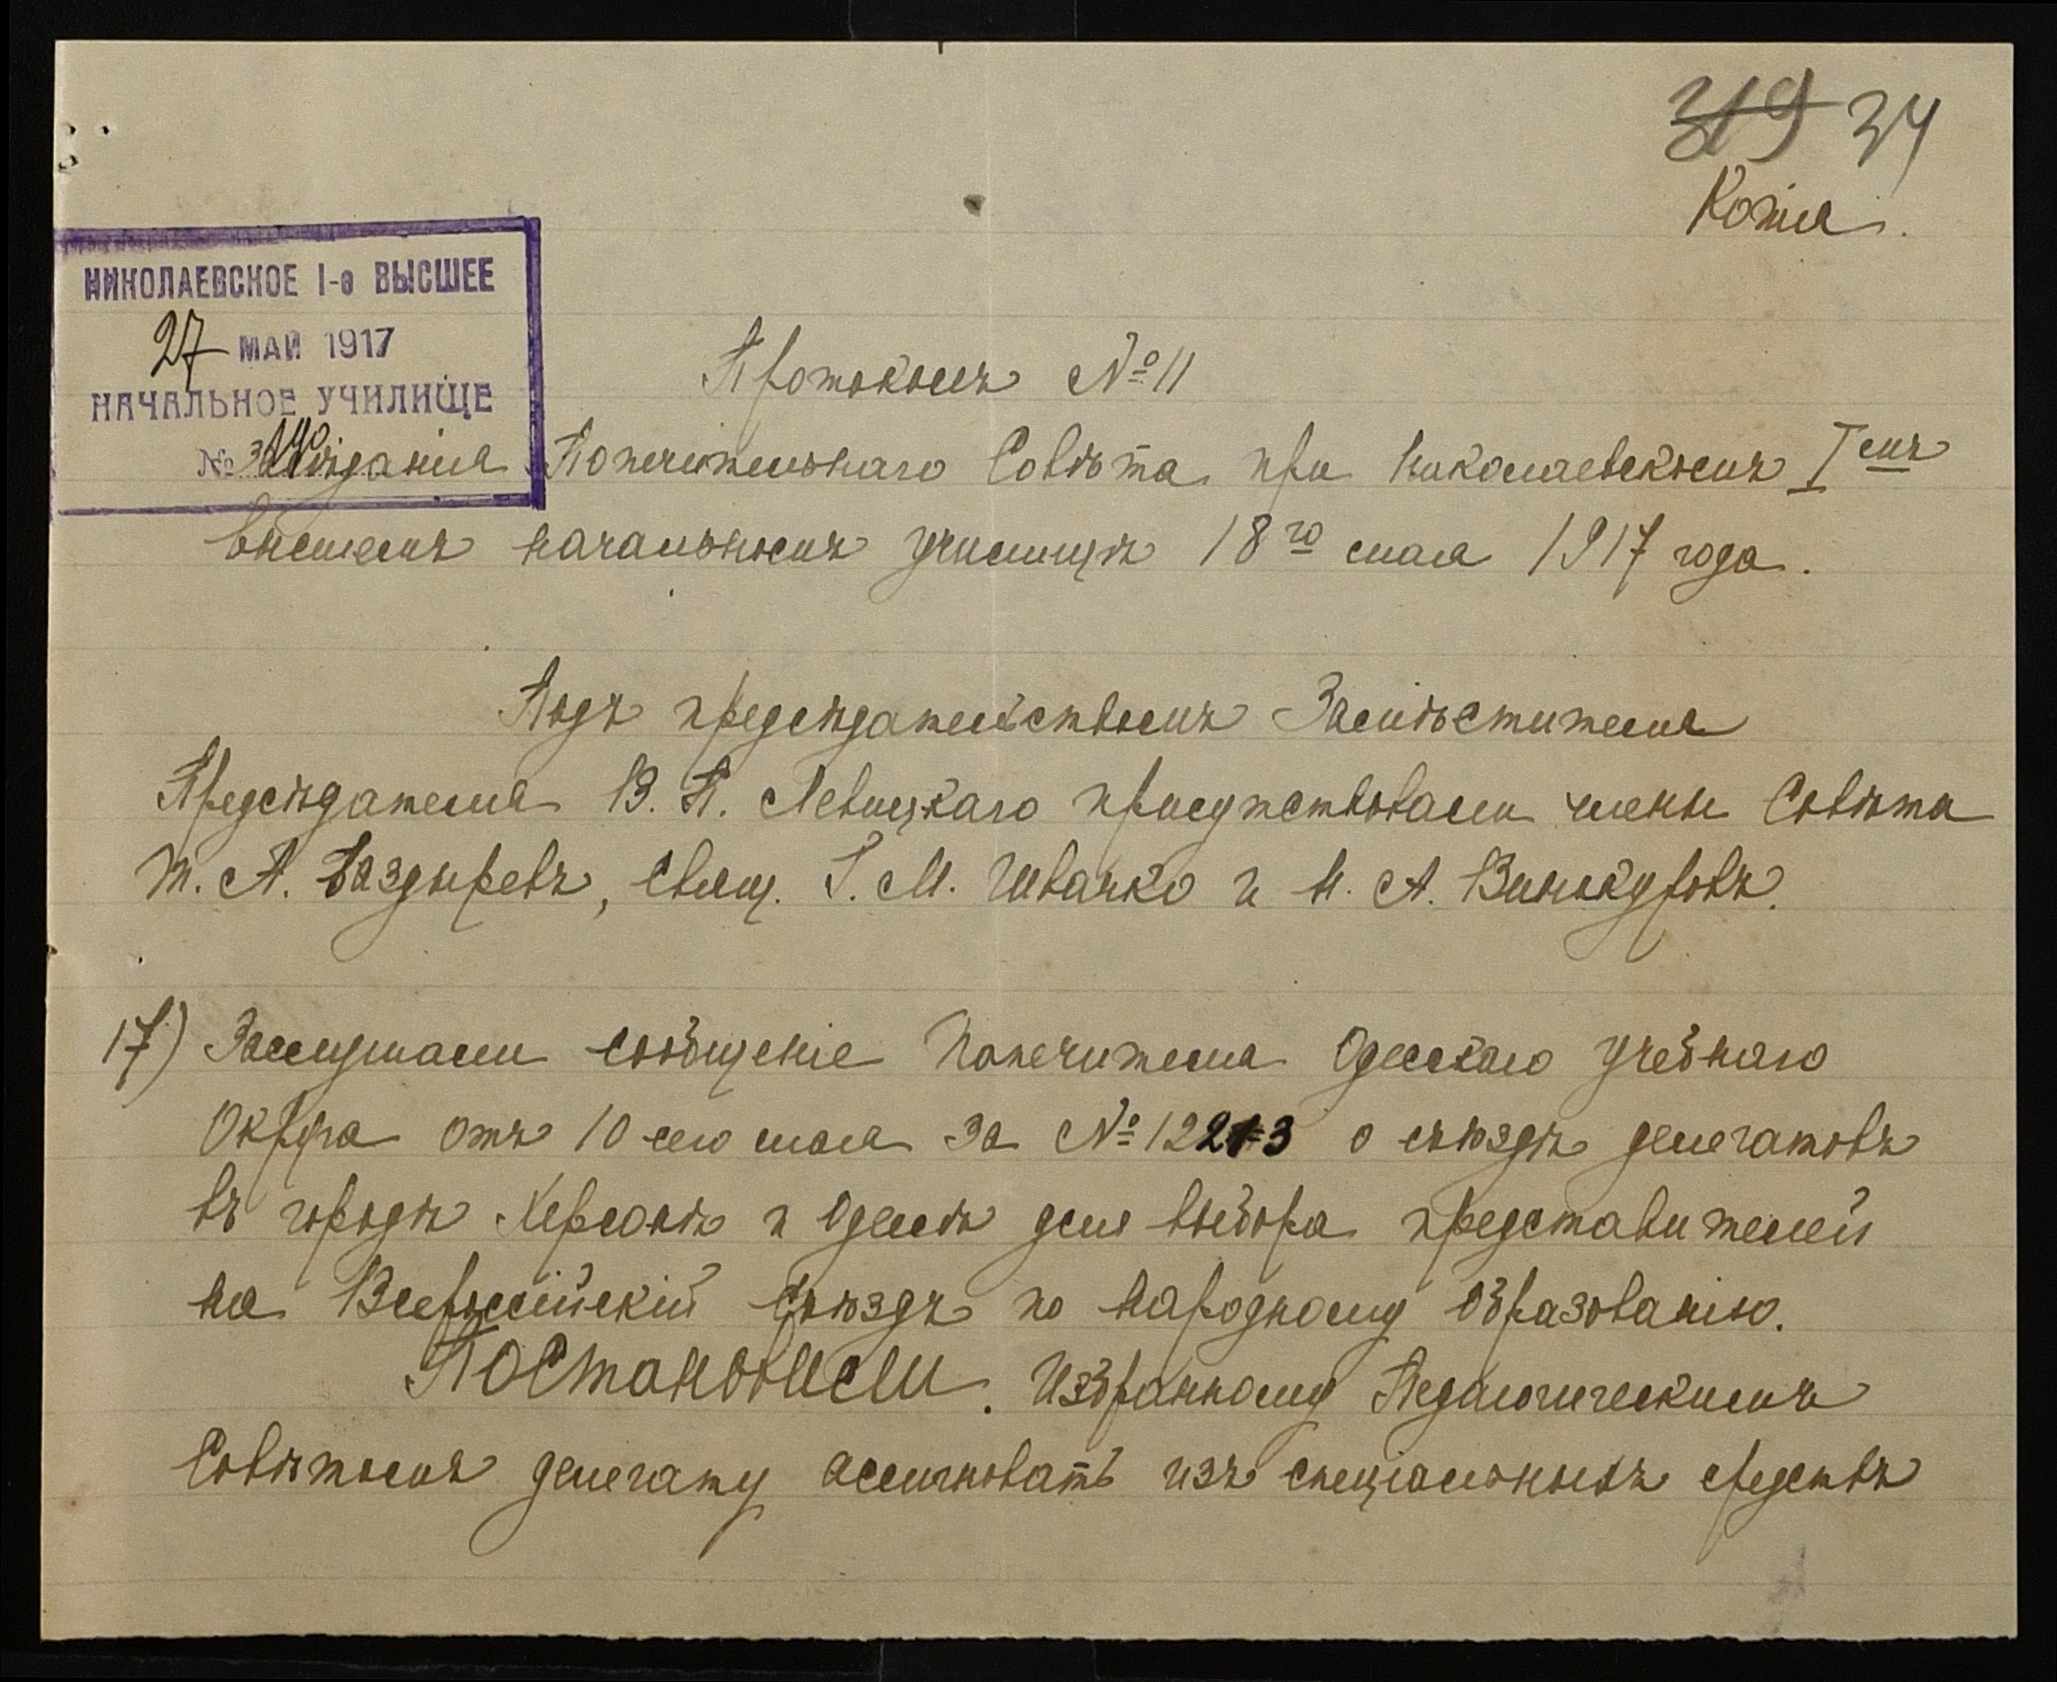 319 34
Копія.
НИКОЛАЕВСКОЕ 1-е ВЫСШЕЕ
27 МАЙ 1917
НАЧАЛЬНОЕ УЧИЛИЩЕ
№ 190
Протоколъ № 11
Засѣданія Попечительнаго Совѣта при Николаевскомъ Iомъ
высшемъ начальномъ училищѣ 18го мая 1917 года.
Подъ предсѣдательствомъ Замѣстителя
Предсѣдателя В. П. Левицкаго присутствовали члены Совѣта
т. А. Баздыревъ, Свящ. Г. М. Швачко и Н. А. Винокуровъ.
17) Заслушали сообщеніе Попечителя Одесскаго Учебнаго
Округа отъ 10 сего мая за № 12213 о съѣздѣ делегатовъ
въ городѣ Херсонѣ и Одессѣ для выбора представителей
на Всероссійскій съѣздъ по народному образованію.
Постановили. Избранному Педагогическимъ
Совѣтомъ делегату ассигновать изъ спеціальныхъ средствъ